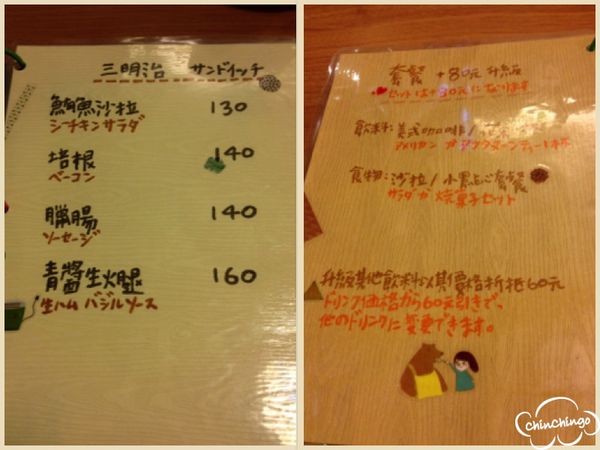 三明治 サンドイッチ
鮪魚沙拉 130
シーチキンサラダ
培根 140
ベーコン
臘腸 140
ソーセージ
青醬生火腿 160
生ハム バジルソース
套餐 +80元升級
セットは+80元になります
飲料:美式咖啡/
アメリカン アフタヌーンティー1杯
食物:沙拉/小點心套餐
サラダか 焼菓子セット
升級其他飲料以其價格折抵60元
ドリンク価格から60元引きで、
他のドリンクに変更できます。
chinchingo